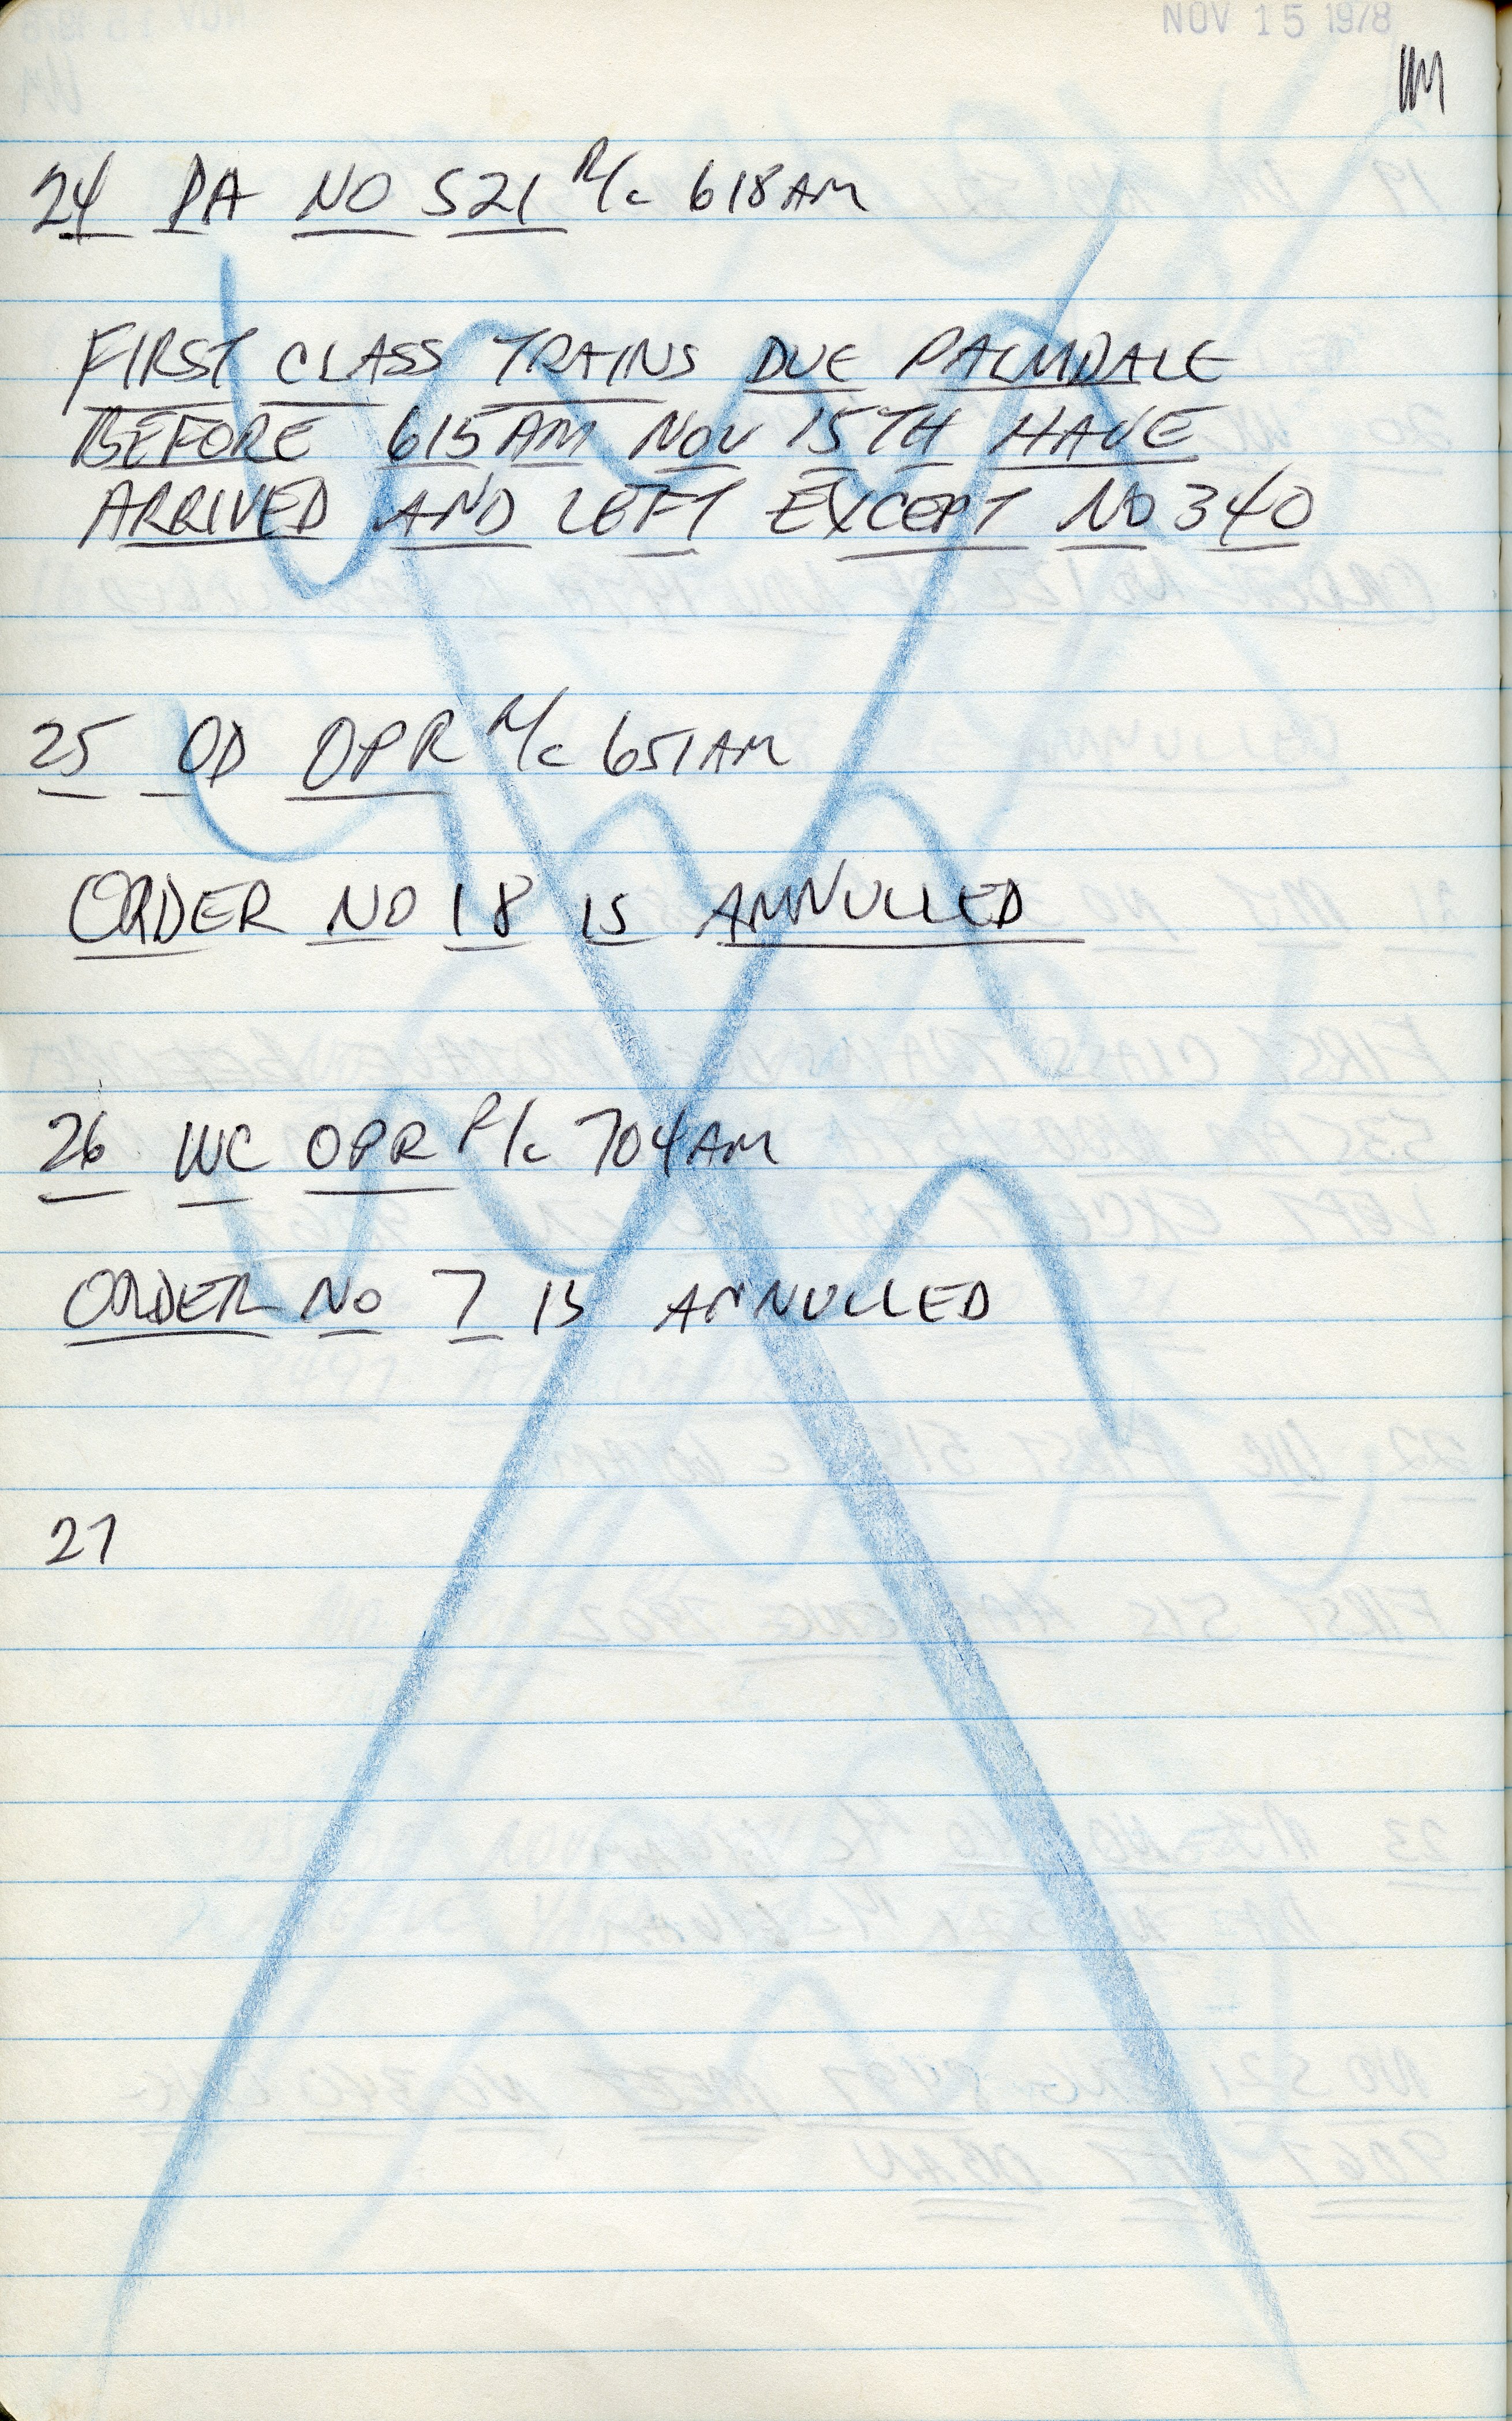 NOV 15 1978
24 PA NO 521 R/c 618AM
FIRST CLASS TRAINS DUE PALMDALE
BEFORE 615AM NOV 15TH HAVE
ARRIVED AND LEFT EXCEPT NO 340
25 OD OPR R/c 651AM
ORDER NO 18 IS ANNULLED
26 WC OPR R/c 704AM
ORDER NO 7 IS ANNULLED
27